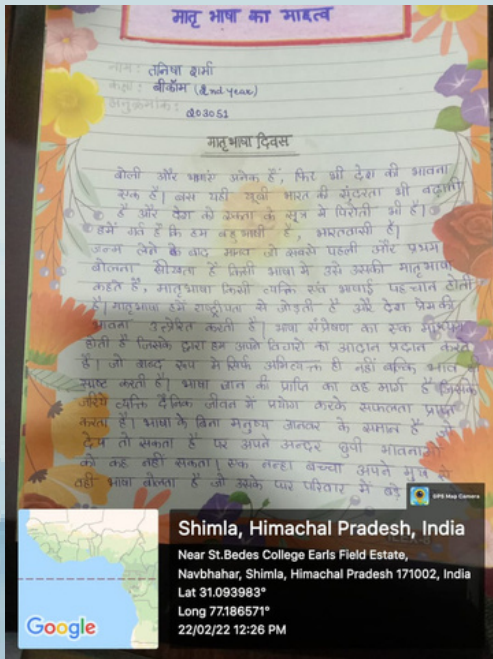 मातृ भाषा का माहत्व
नाम: तनिषा शर्मा
कक्षा: बीकॉम (2nd year)
अनुक्रमांक:
203051
मातृभाषा दिवस
बोली और भाषाएं अनेक हैं, फिर भी देश की भावना
एक है। बस यही खूबी भारत की सुंदरता भी बढ़ाती
है और देश को एकता के सूत्र में पिरोती भी है।
हमें गर्व है कि हम बहुभाषी हैं, भारतवासी हैं।
जन्म लेने के बाद मानव जो सबसे पहली और प्रथम
बोलना सीखता है किसी भाषा में उसे उसकी मातृभाषा
कहते हैं, मातृभाषा किसी व्यक्ति एवं भाषाई पहचान होती
है। मातृभाषा हमें राष्ट्रीयता से जोड़ती है और देश प्रेम की
भावना उत्प्रेरित करती है। भाषा संप्रेषण का एक माध्यम
होती है जिसके द्वारा हम अपने विचारों का आदान प्रदान करते
हैं। जो शब्द रूप में सिर्फ अभिव्यक्त ही नहीं बल्कि भाव
स्पष्ट करती है। भाषा ज्ञान की प्राप्ति का वह मार्ग है जिसके
जरिये व्यक्ति दैनिक जीवन में प्रयोग करके सफलता प्राप्त
करता है। भाषा के बिना मनुष्य जानवर के समान है जो
देख तो सकता है पर अपने अन्दर छुपी भावनाओं
को कह नहीं सकता। एक नन्हा बच्चा अपने मुख से
वही भाषा बोलता है जो उसके घर परिवार में बड़े
GPS Map Camera
Google
Shimla, Himachal Pradesh, India
Near St.Bedes College Earls Field Estate,
Navbhahar, Shimla, Himachal Pradesh 171002, India
Lat 31.093983°
Long 77.186571°
22/02/22 12:26 PM